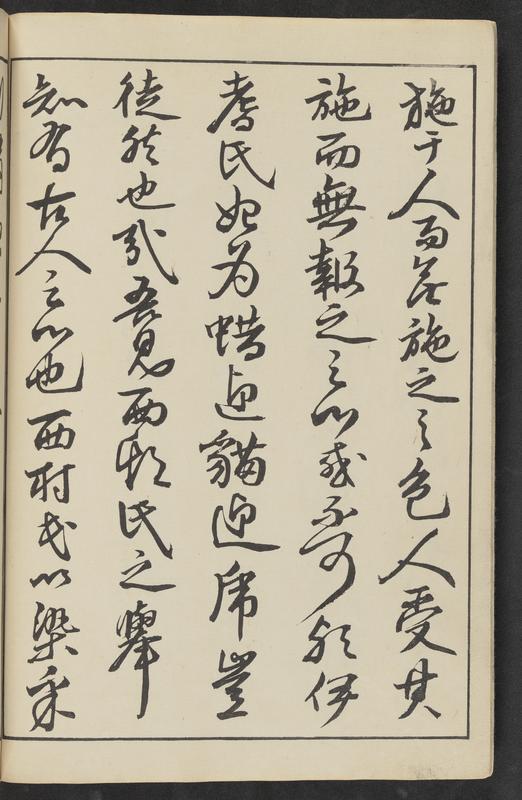 施于人而施之之色人受其
施而無報之之心或不可然伊
耆氏始為蜡迎貓迎虎豈
徒然也哉吾見西村氏之舉
知有古人之心也西村氏以染采